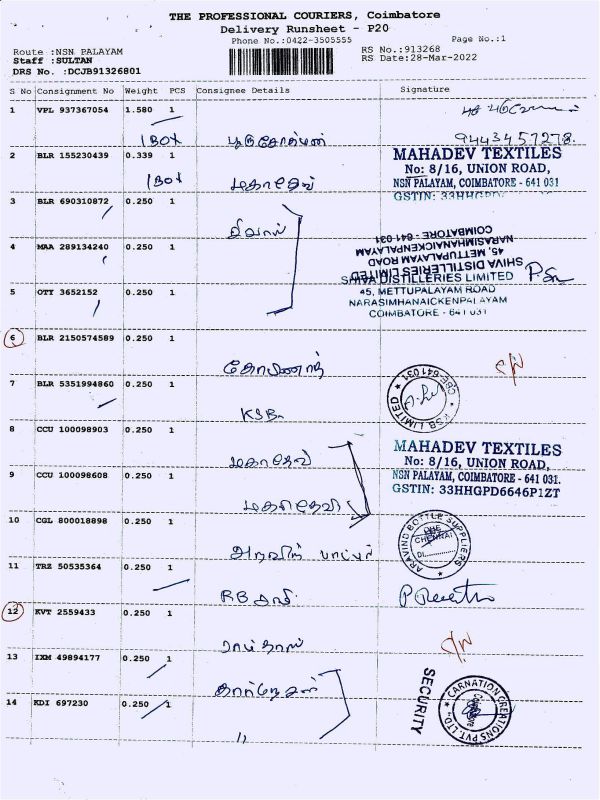 THE PROFESSIONAL COURIERS, Coimbatore
Delivery Runsheet - P20
Phone No.:0422-3505555
Page No.:1
Route :NSN PALAYAM
RS No.:913268
Staff :SULTAN
RS Date:28-Mar-2022
DRS No. :DCJB91326801
S No Consignment No Weight PCS Consignee Details Signature
1 VPL 937367054 1.580 1
1 BOX 9443457278.
2 BLR 155230439 0.339 1
MAHADEV TEXTILES
No: 8/16, UNION ROAD,
1 BOX மகாதேவ்
NSN PALAYAM, COIMBATORE - 641 031
3 BLR 690310872 0.250 1
சிவாஸ்
4 MAA 289134240 0.250 1
SHIVA DISTILLERIES LIMITED
45, METTUPALAYAM ROAD
NARASIMHANAICKENPALAYAM
COIMBATORE - 641 031
SHIVA DISTILLERIES LIMITED
5 OTY 3652152 0.250 1
45, METTUPALAYAM ROAD
NARASIMHANAICKENPALAYAM
COIMBATORE - 641 031
6 BLR 2150574589 0.250 1
7 BLR 5351994860 0.250 1
KSB LIMITED
CBE-641 031
KSB
8 CCU 100098903 0.250 1
MAHADEV TEXTILES
No: 8/16, UNION ROAD,
மகாதேவ்
9 CCU 100098608 0.250 1
NSN PALAYAM, COIMBATORE - 641 031.
GSTIN: 33HHGPD6646P1ZT
10 CGL 800018898 0.250 1
ARAVIND BOTTLE SUPPLIERS
11 TRZ 50535364 0.250 1
12 KVT 2559433 0.250 1
13 IXM 49894177 0.250 1
SECURITY
CARNATION CREATIONS PVT. LTD.
14 KDI 697230 0.250 1
"